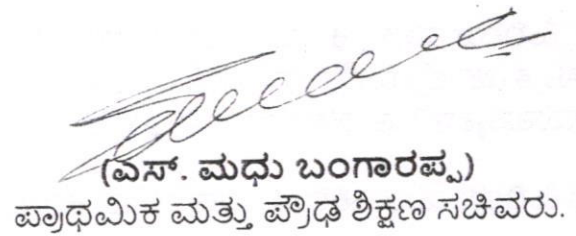 (ಎಸ್. ಮಧು ಬಂಗಾರಪ್ಪ)
ಪ್ರಾಥಮಿಕ ಮತ್ತು ಪ್ರೌಢ ಶಿಕ್ಷಣ ಸಚಿವರು.